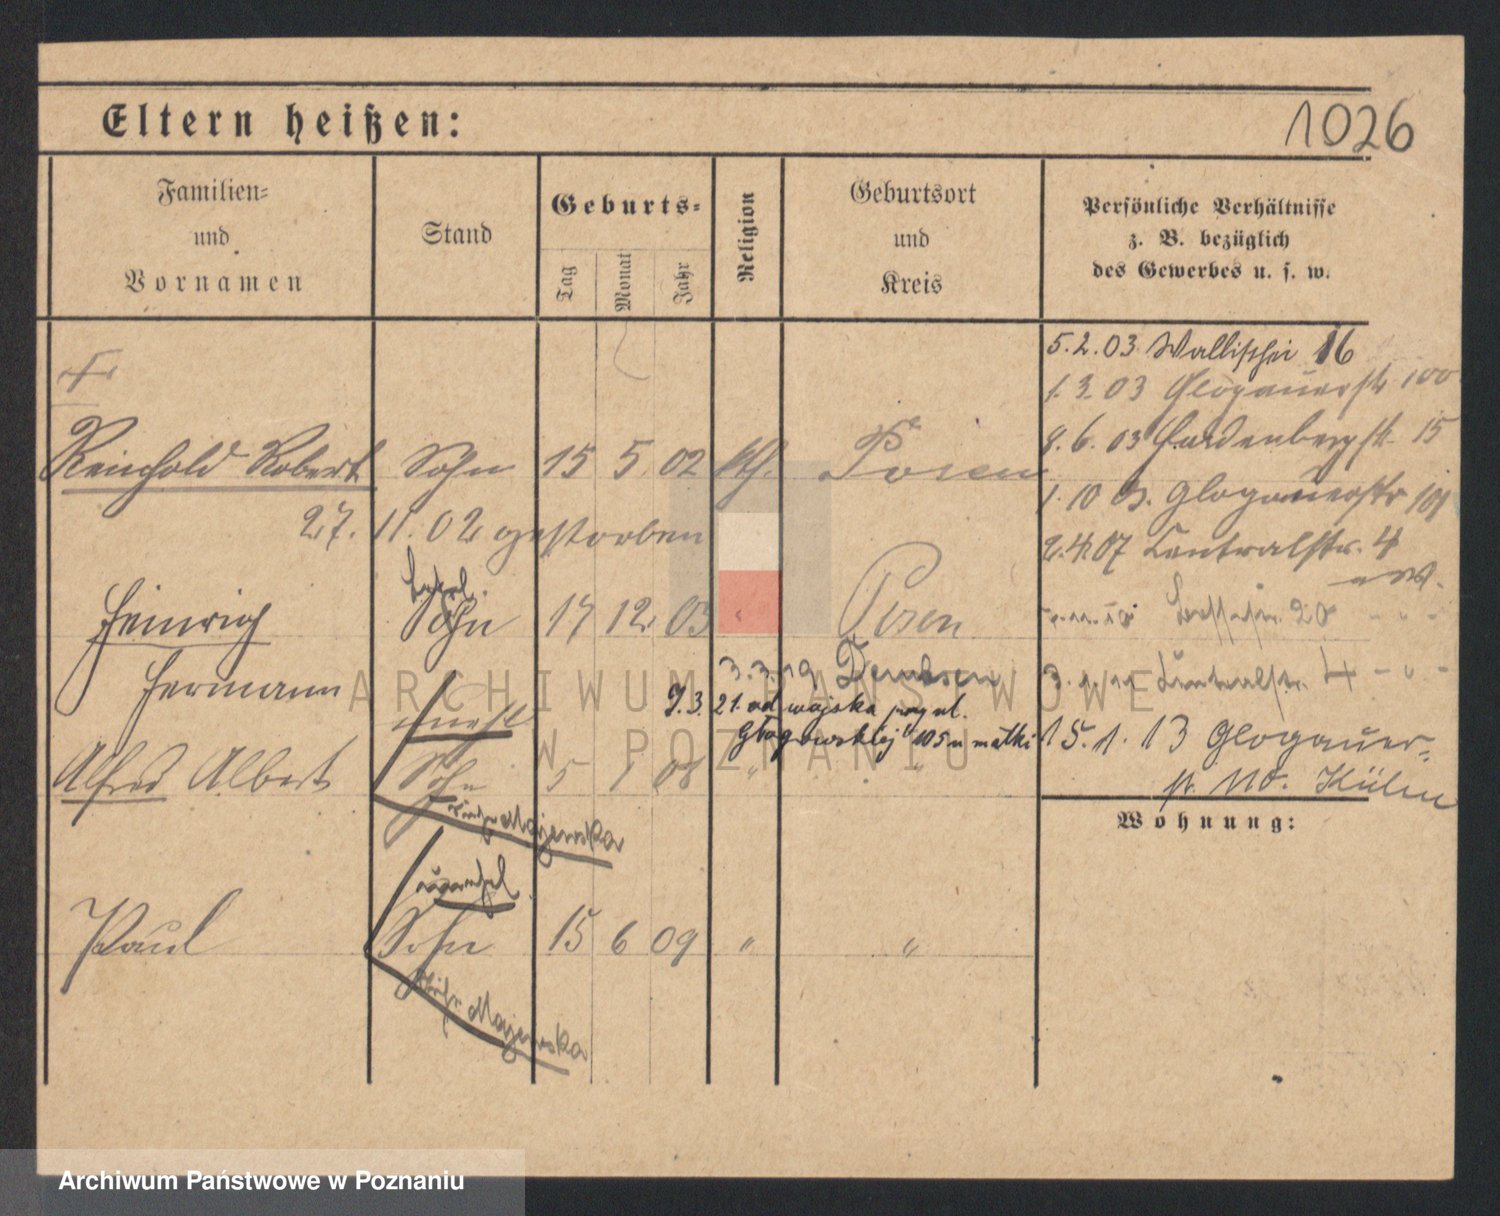 Eltern heißen:
1026
Familien-
und
Vornamen
Stand
Geburts-
Tag
Monat
Jahr
Religion
Geburtsort
und
Kreis
Persönliche Verhältnisse
z. B. bezüglich
des Gewerbes u. s. w.
5.2.03 Wallischei 16
1.3.03 Glogauerstr 100
9.6.03 Hardenbergstr. 15
1.10 03. Glogauerstr 101
2.4.07 Centralstr. 4
20
3. Centralstr. 4 - " -
15.1.13 Glogauer-
str.
Wohnung:
†
Reinhold Robert Sohn 15 5 02 kth. Posen
27. 11. 02 gestorben
Heinrich Sohn 17 12 03 " Posen
Hermann
3.3.19 Dembsen
J.3.21. od wojska przy ul.
Głogowskiej 105 u matki
Alfred Albert Sohn 5 1 08 " "
Majewska
Paul Sohn 15 6 09 " "
Majewska
ARCHIWUM PAŃSTWOWE
W POZNANIU
Archiwum Państwowe w Poznaniu